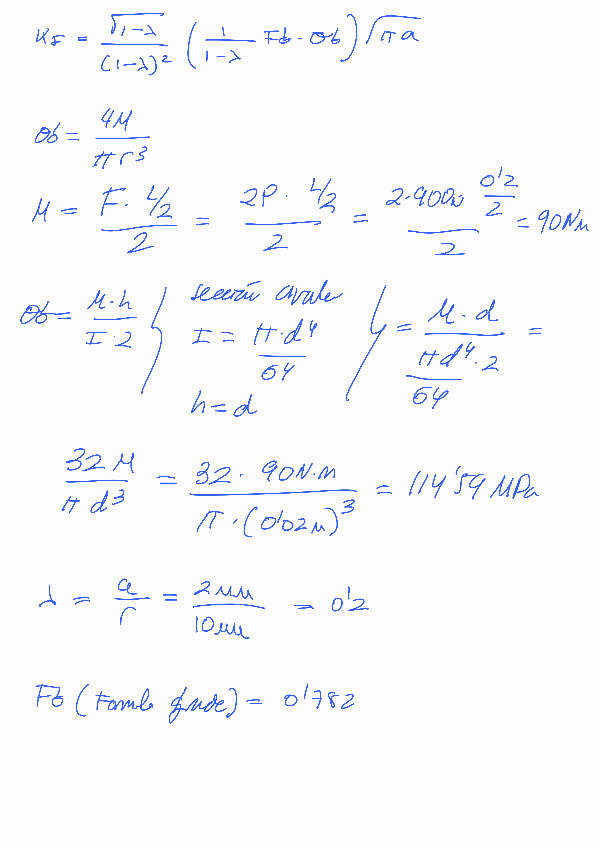 K_I = \frac{\sqrt{1-λ}}{(1-λ)^2} ( \frac{1}{1-λ} Fb · σb ) \sqrt{πa}
σb = \frac{4M}{πr^3}
M = \frac{F · L/2}{2} = \frac{2P · L/2}{2} = \frac{2·900N \frac{0'2}{2}}{2} = 90Nm
σb = \frac{M·h}{I·2} } sección I = \frac{π·d^4}{64} h = d } = \frac{M·d}{\frac{πd^4·2}{64}} =
\frac{32M}{πd^3} = \frac{32·90N·m}{π·(0'02m)^3} = 114'59 MPa
λ = \frac{a}{r} = \frac{2mm}{10mm} = 0'2
Fb ( ) = 0'782